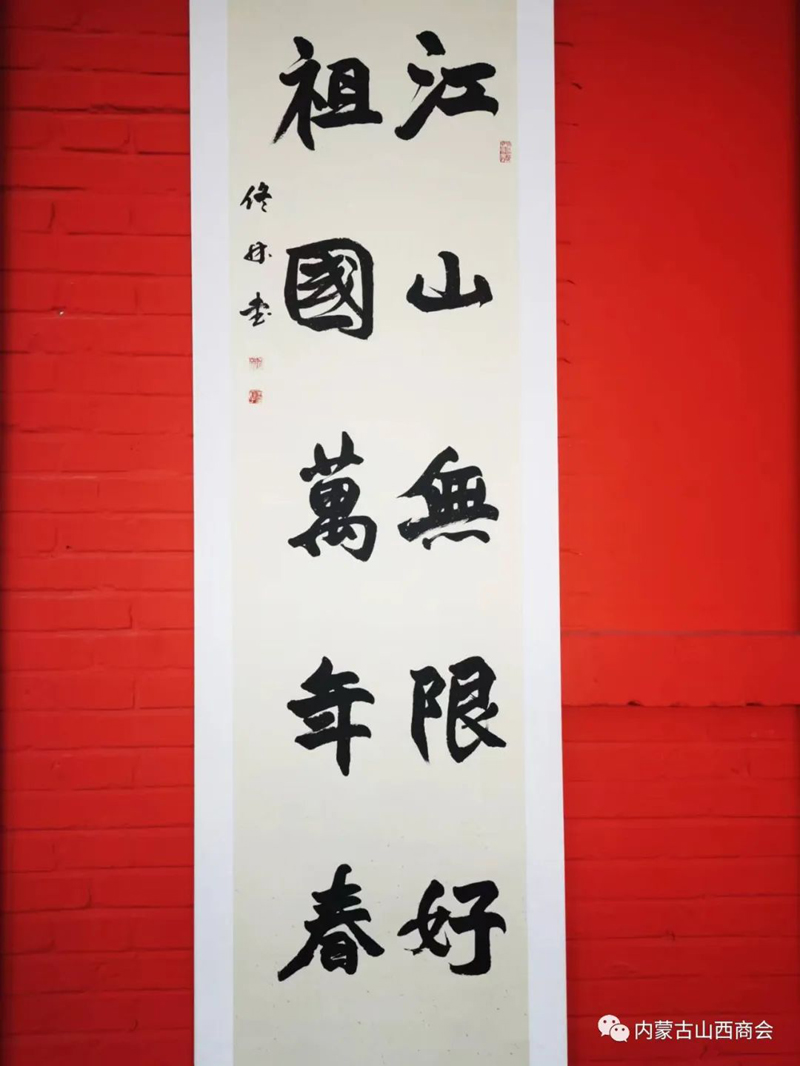 江山無限好
祖國萬年春
修林书
内蒙古山西商会